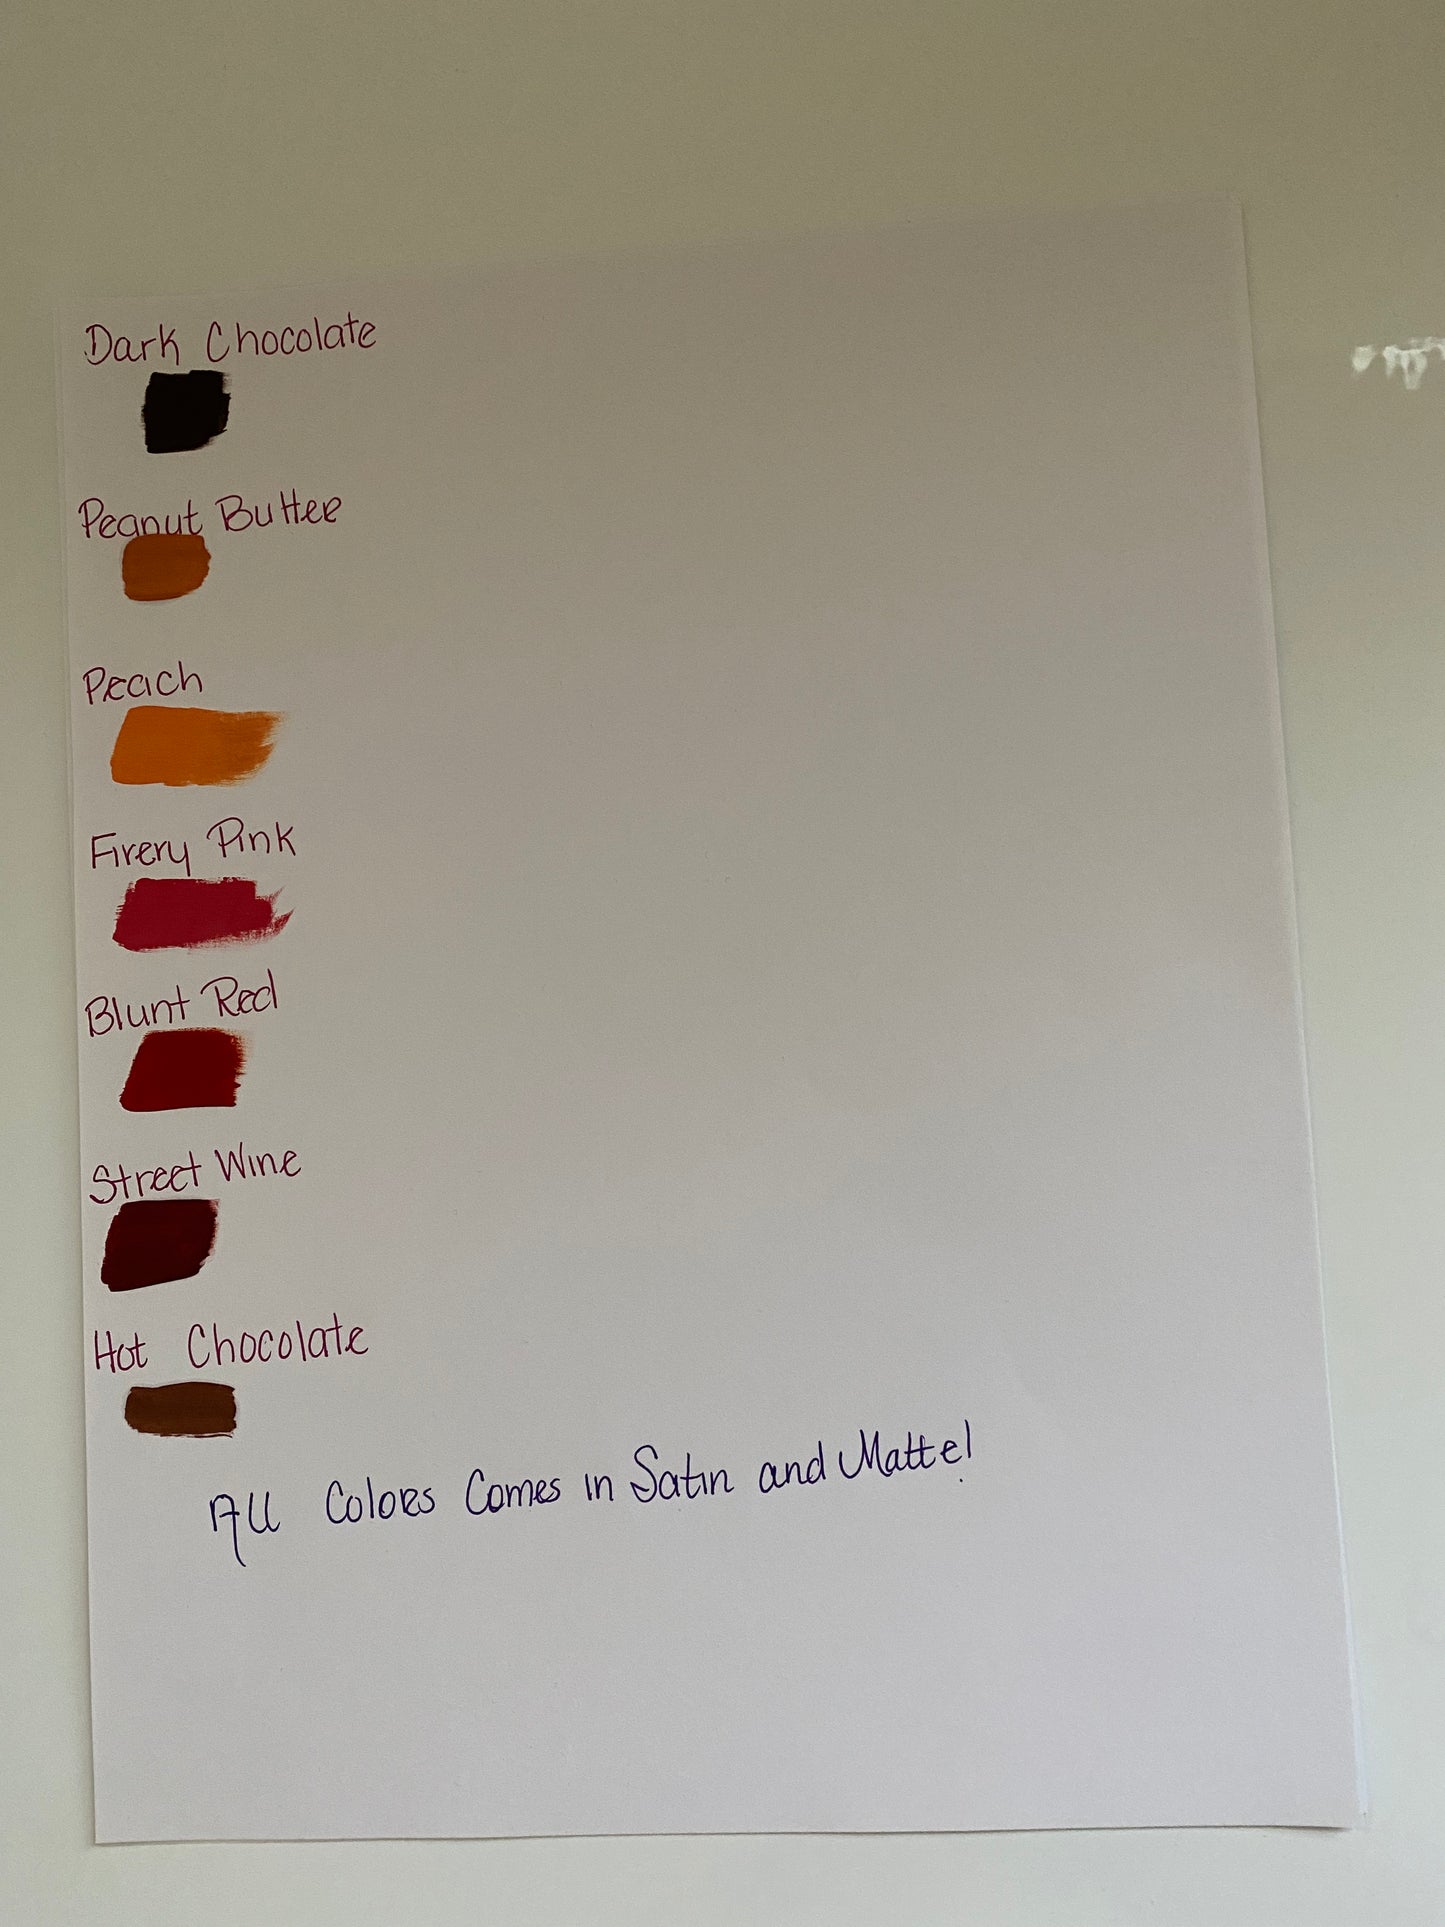 Dark Chocolate
Peanut Butter
Peach
Firery Pink
Blunt Red
Street Wine
Hot Chocolate
All Colors Comes in Satin and Matte!